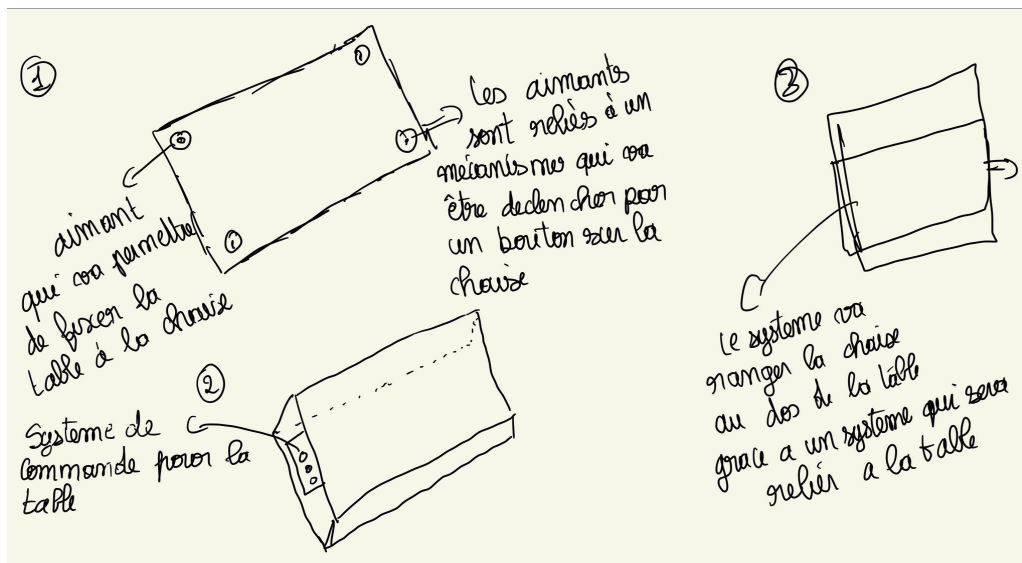 1
aimant
qui va permettre
de fixer la
table à la chaise
Les aimants
sont reliés à un
mécanisme qui va
être declencher par
un bouton sur la
chaise
2
Systeme de
commande pour la
table
3
Le systeme va
ranger la chaise
au dos de la table
grace a un systeme qui sera
reliér a la table